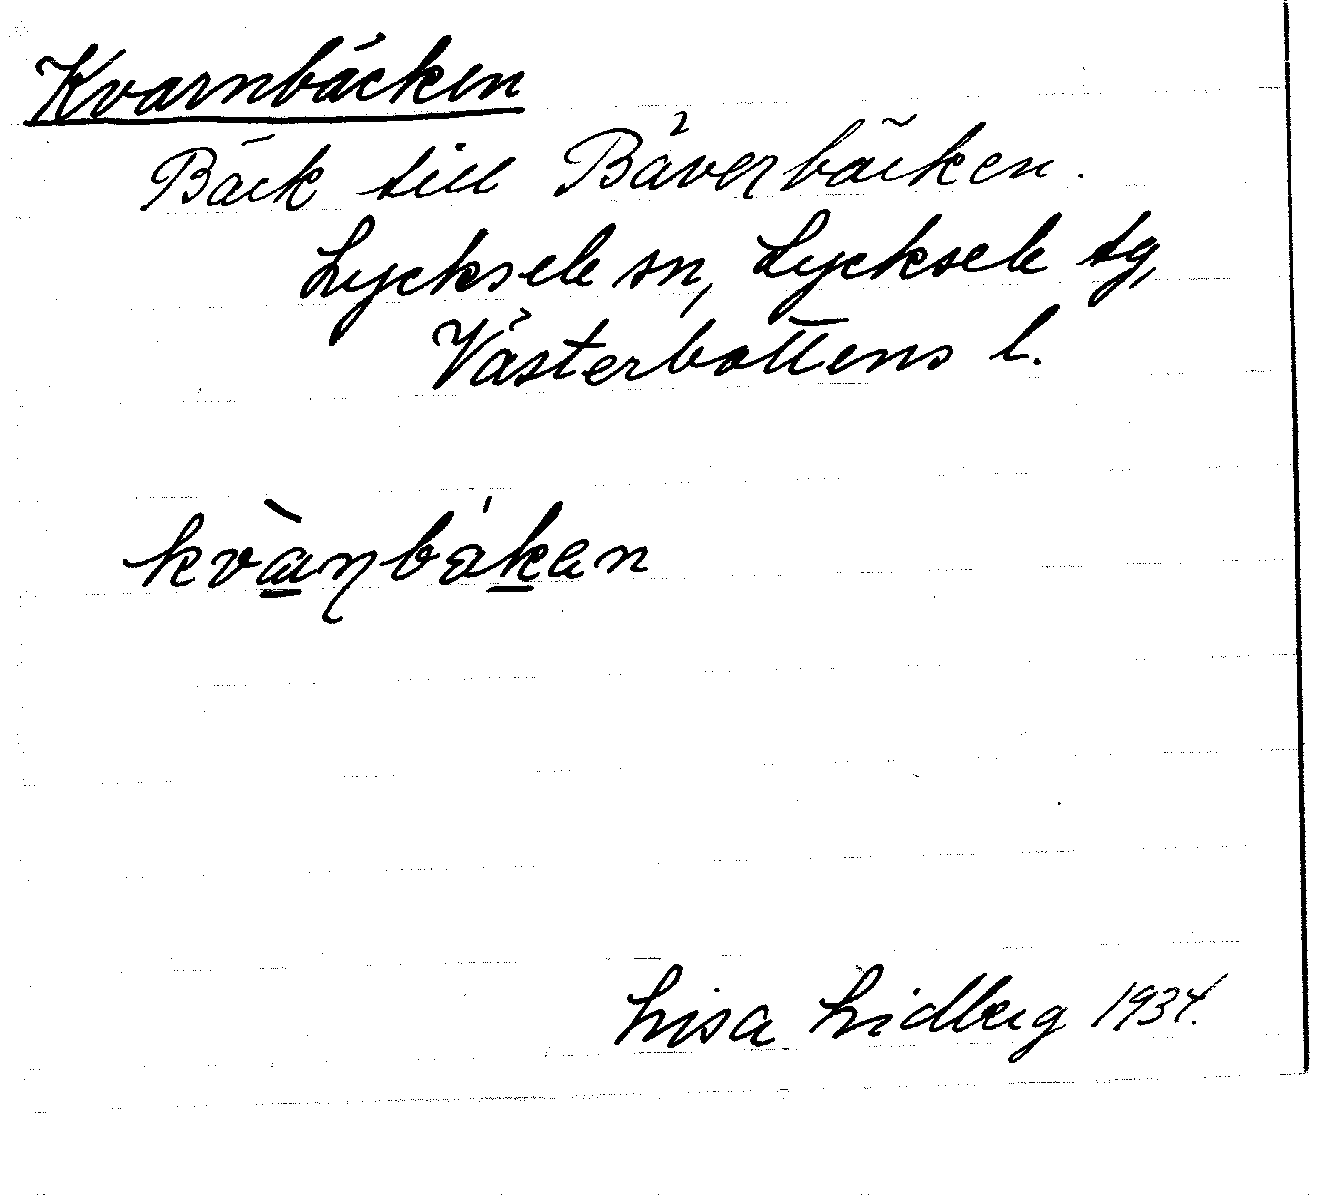 Kvarnbäcken
Bäck till Bäverbäcken.
Lycksele sn, Lycksele tg,
Västerbottens l.
Lisa Lidberg 1934.